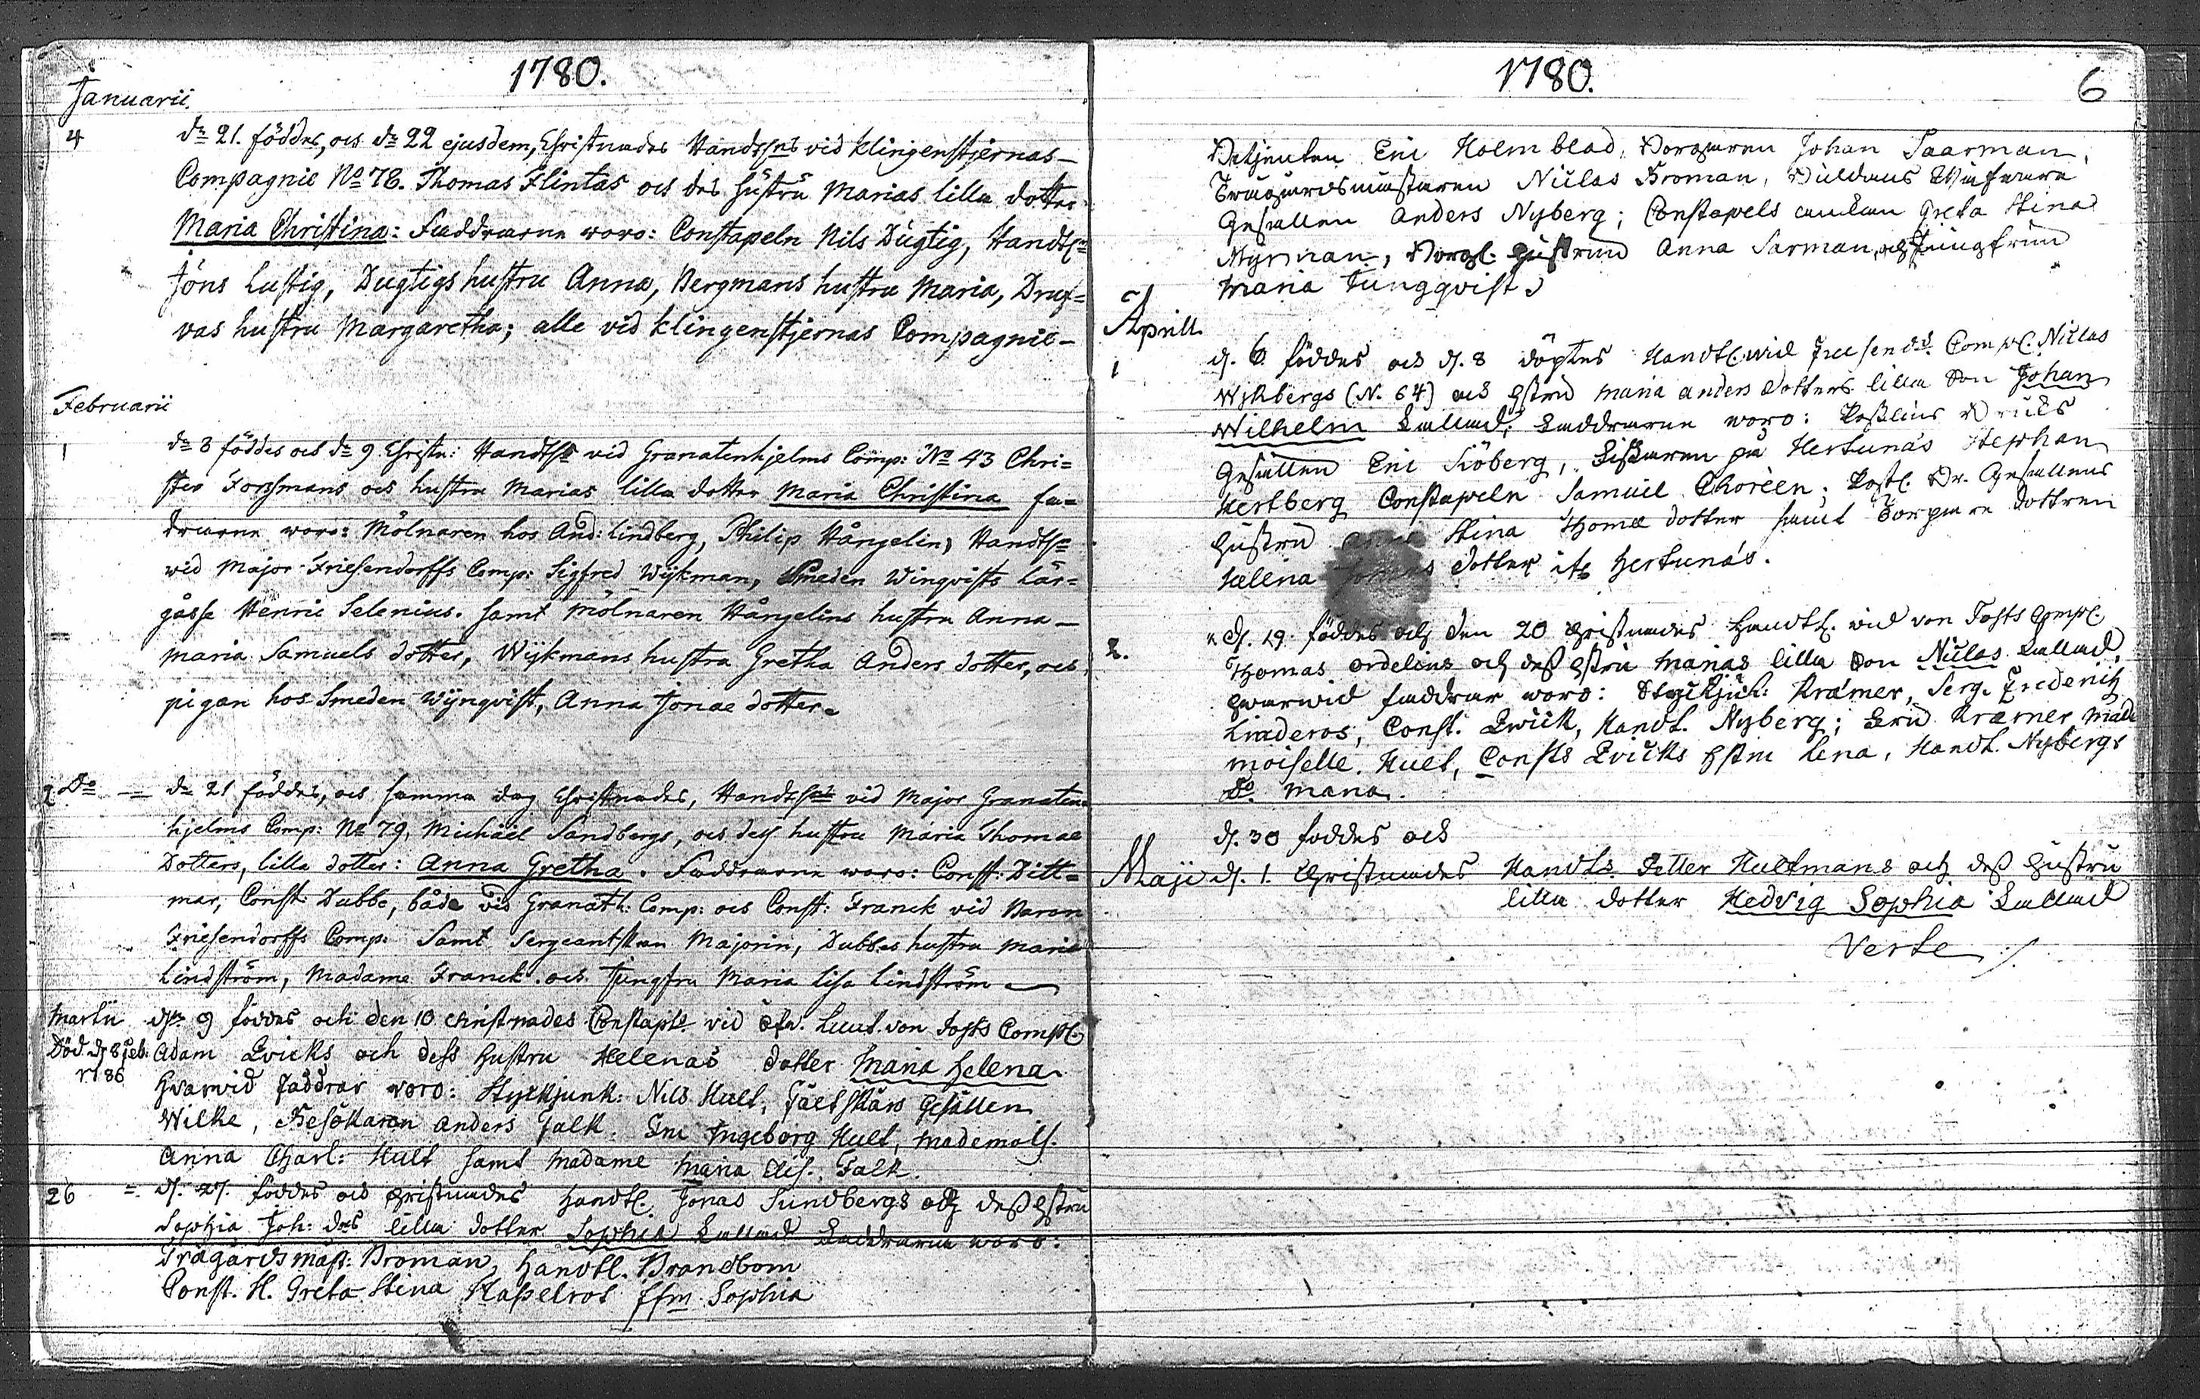 1780.
Januarii
4 dn 21. föddes, och dn 22 ejusdem, Christnades Handtls vid Klingenstjernas
Compagnie No 78. Thomas Flintas och des hustru Marias lilla dotter
Maria Christina: Faddrarne woro: Constapeln Nils Dugtig, Handtl:
Jöns Lustig, Dugtigs hustru Anna, Bergmans hustru Maria, Druf=
vas hustru Margaretha; alle vid Klingenstjernas Compagnie
Februarii
1 dn 8 föddes och dn 9 Christn: Handtls vid Granatenhjelms Comp: No 43 Chri=
ster Forssmans och hustru Marias lilla dotter Maria Christina fa=
drarne woro: Mölnaren hos And: Lindberg, Philip Hångelin, Handtl
vid Major Friesendorffs Comp: Sigfred Wijkman, Smeden Winqvists Lär=
gåsse Henric Selenius. samt Mölnaren Hångelins hustru Anna
Maria Samuels dotter, Wijkmans hustru Gretha Anders dotter, och
pigan hos Smeden Wijnqvist, Anna Jonae dotter
2 Do dn 21 föddes, och samma dag Christnades, Handtls vid Major Granaten=
hjelms Comp: No 79, Michäel Sandbergs, och dess hustru Maria Thomae
Dotters, lilla dotter: Anna Gretha. Faddrarne woro: Const: Ditt=
mar, Const: Dubbe, både vid Granath: Comp: och Const: Franck vid Baron
Friesendorffs Comp: Samt Sergeantskan Majorin, Dubbes hustru Maria
Lindström, Madame Franck. och Jungfru Maria Lisa Lindström
Martii dn 9 föddes och den 10 christnades Constapls vid Lieut. von Josts Comp:
Död d. 8 feb: Adam Qvicks och dess hustru Helenas dotter Maria Helena.
1786 Hvarvid faddrar woro: Styckjunk: Nils Hult, Fältskärs Gesällen
Wilke, Besökaren Anders Falk, Fru Ingeborg Hult, Mademois.
Anna Charl: Hult samt Madame Maria Elis. Falk.
26 d. 27. föddes och Christnades Handtl. Jonas Sundbergs och dess hstru
Sophia Joh: drs lilla dotter Sophia kallad Faddrarne woro:
Trägårdsmäst: Broman, Handtl. Brandbom
Const. H. Greta Stina Hasselrot Sophia
1780.
6
Betjenten Eric Holmblad, Borgaren Johan Saarman,
Trägårdsmästaren Niclas Broman,
Gesällen Anders Nyberg; Constapels enkan Greta Stina
Myrman, Borgl. Hustrun Anna Sarman, och Jungfrun
Maria Ljungqvist
Aprill
1 d. 6 föddes och d. 8 döptes Handtl. wid Friesend: Comp: Niclas
Wikbergs (N. 64) och hstru Maria Anders dotters lilla Son Johan
Wilhelm kallad; Faddrarne woro:
Gesällen Eric Siöberg, Fiskaren på Hertunäs Stephan
Hertberg Constapeln Samuel Choréen; Gesällens
Hustru Stina Thomæ dotter samt dottren
Helena dotter Hertunäs.
2. d. 19. föddes och den 20 Christnades Handtl. wid von Josts Comp:
Thomas Ordelins och dess hstru Marias lilla Son Niclas kallad,
Hwarvid faddrar woro: Styckjuk: Kræmer, Serg. Frederich
Linderos, Const. Qwick, Handt. Nyberg; Fru Kræmer, Made
moiselle. Hult, Consts Qvicks hstru Lena, Handt. Nybergs
Do. Maria.
d. 30 föddes och
Maji d. 1. Christnades Handtls Petter Hultmans och dess Hustru
lilla dotter Hedvig Sophia kallad
Verte